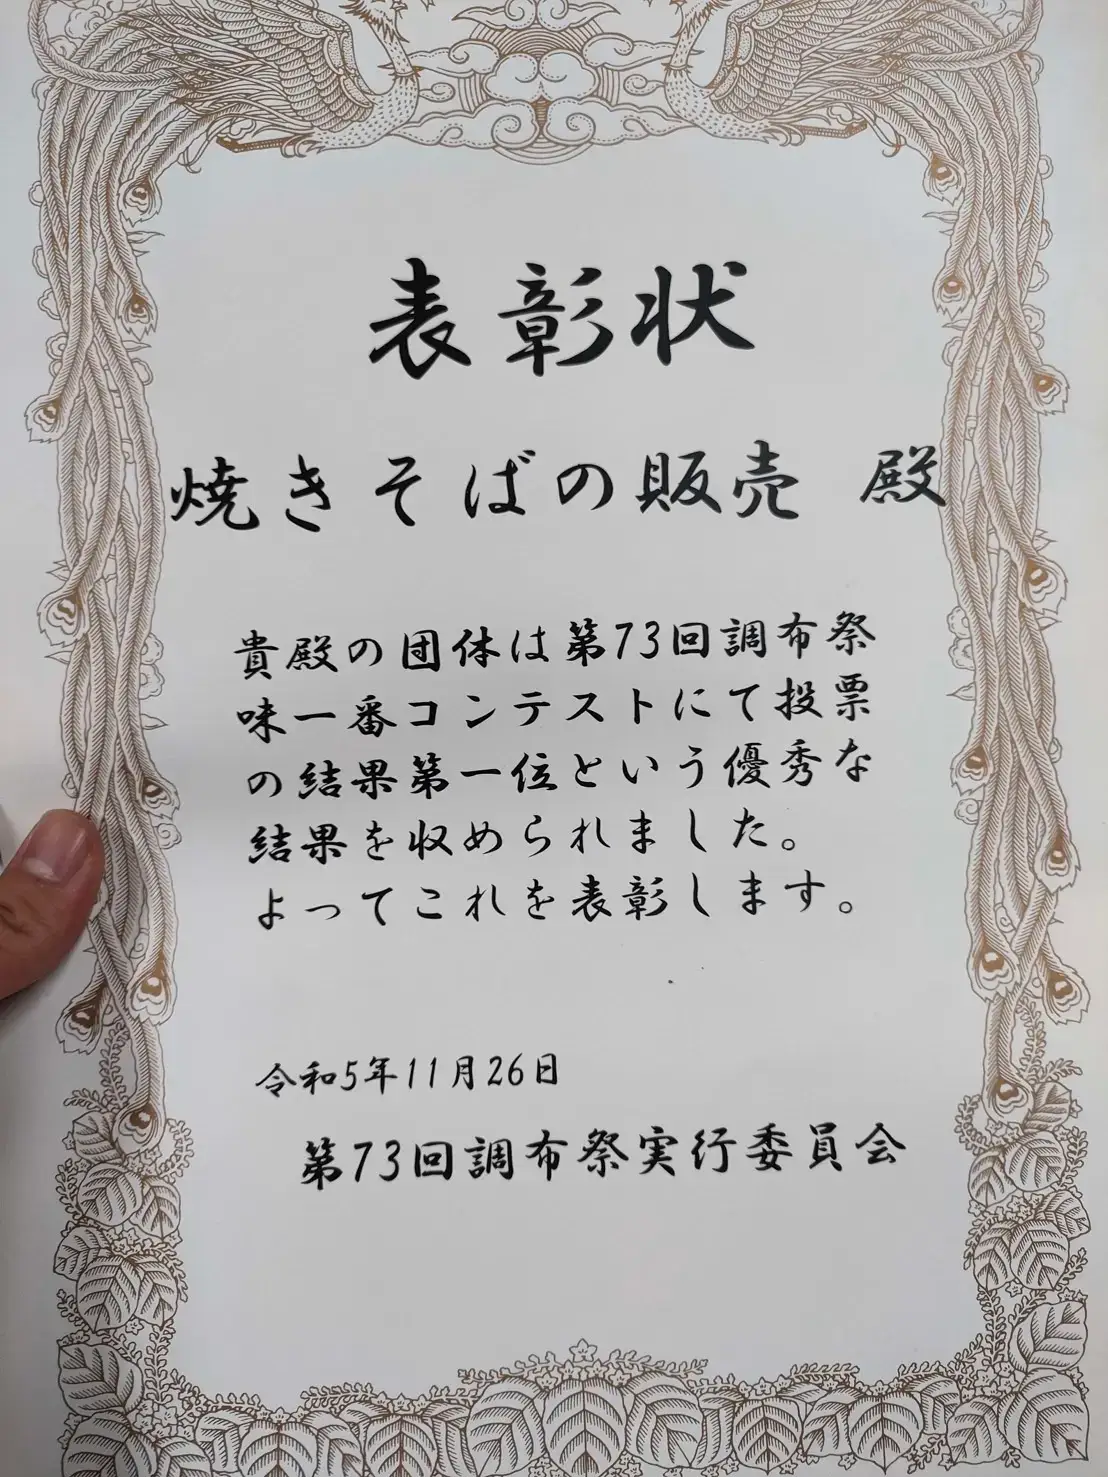 表彰状
焼きそばの販売 殿
貴殿の団体は第73回調布祭
味一番コンテストにて投票
の結果第一位という優秀な
結果を収められました。
よってこれを表彰します。
令和5年11月26日
第73回調布祭実行委員会